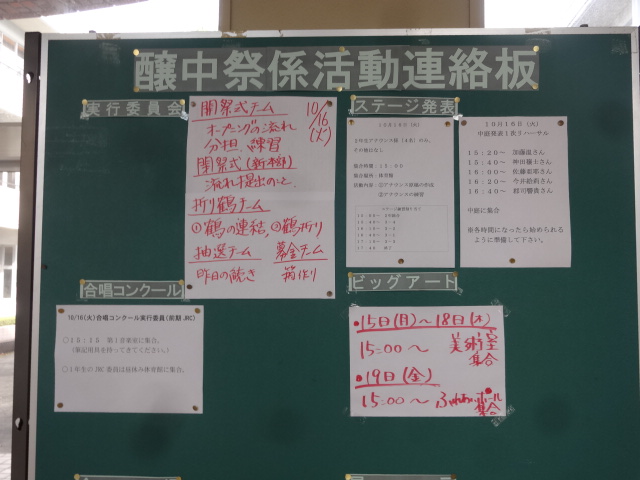 醸中祭係活動連絡板
実行委員会
開祭式チーム
10/16(火)
オープニングの流れ
分担、練習
閉祭式(新本部)
流れ提出のこと
折り鶴チーム
①鶴の連結、②鶴折り
抽選チーム
昨日の続き
募金チーム
箱作り
ステージ発表
集合場所:体育館
10月16日(火)
中庭発表1次リハーサル
15:20~ 加藤凪さん
15:40~ 神田穂士さん
16:00~ 佐藤亜耶さん
16:20~ 今井裕莉さん
16:40~ 郷司響貴さん
中庭に集合
※各時間になったら始められる
ように準備して下さい。
合唱コンクール
10/16(火)合唱コンクール実行委員(前期JRC)
○15:15 第1音楽室に集合。
(筆記用具を持ってきてください。)
○1年生のJRC委員は昼休み体育館に集合。
ビッグアート
•15日(月)~18日(木)
15:00~ 美術室
集合
•19日(金)
15:00~
ホール
集合